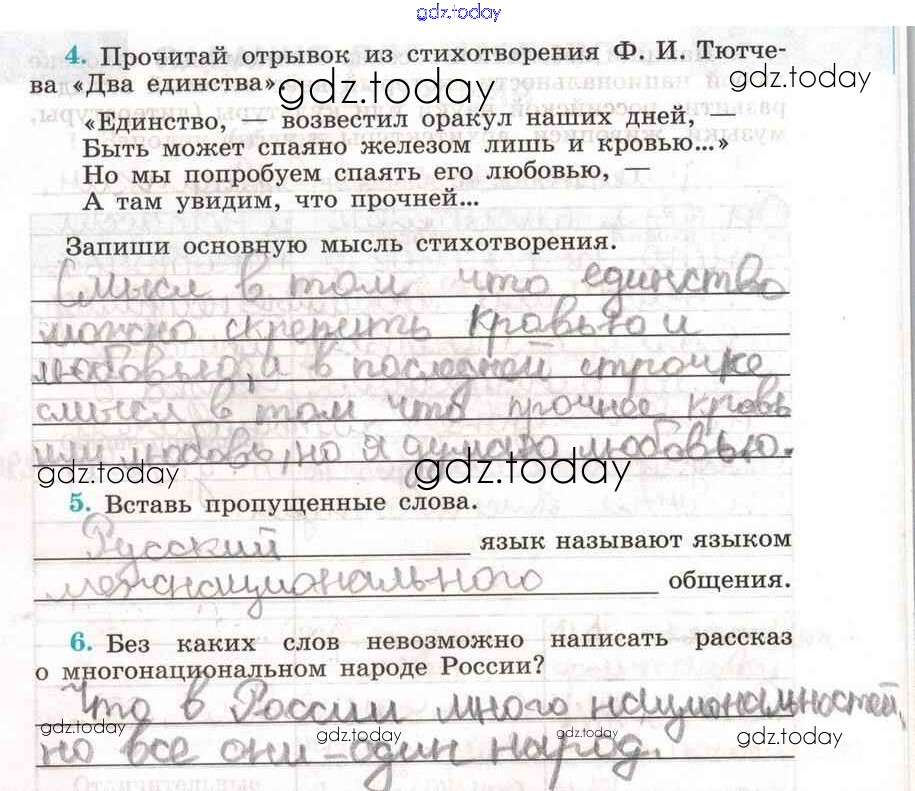 gdz.today
4. Прочитай отрывок из стихотворения Ф. И. Тютче-
ва «Два единства».
gdz.today
gdz.today
«Единство, — возвестил оракул наших дней, —
Быть может спаяно железом лишь и кровью...»
Но мы попробуем спаять его любовью, —
А там увидим, что прочней...
Запиши основную мысль стихотворения.
Смысл в том что единство
можно скрепить кравью и
любовью, и в последней строчке
смысл в том что прочнее кровь
или любовь, но я думаю любовью.
gdz.today
gdz.today
5. Вставь пропущенные слова.
Русский язык называют языком
межнационального общения.
6. Без каких слов невозможно написать рассказ
о многонациональном народе России?
Что в России много национальностей,
но все они – один народ.
gdz.today
gdz.today
gdz.today
gdz.today
Отличительные